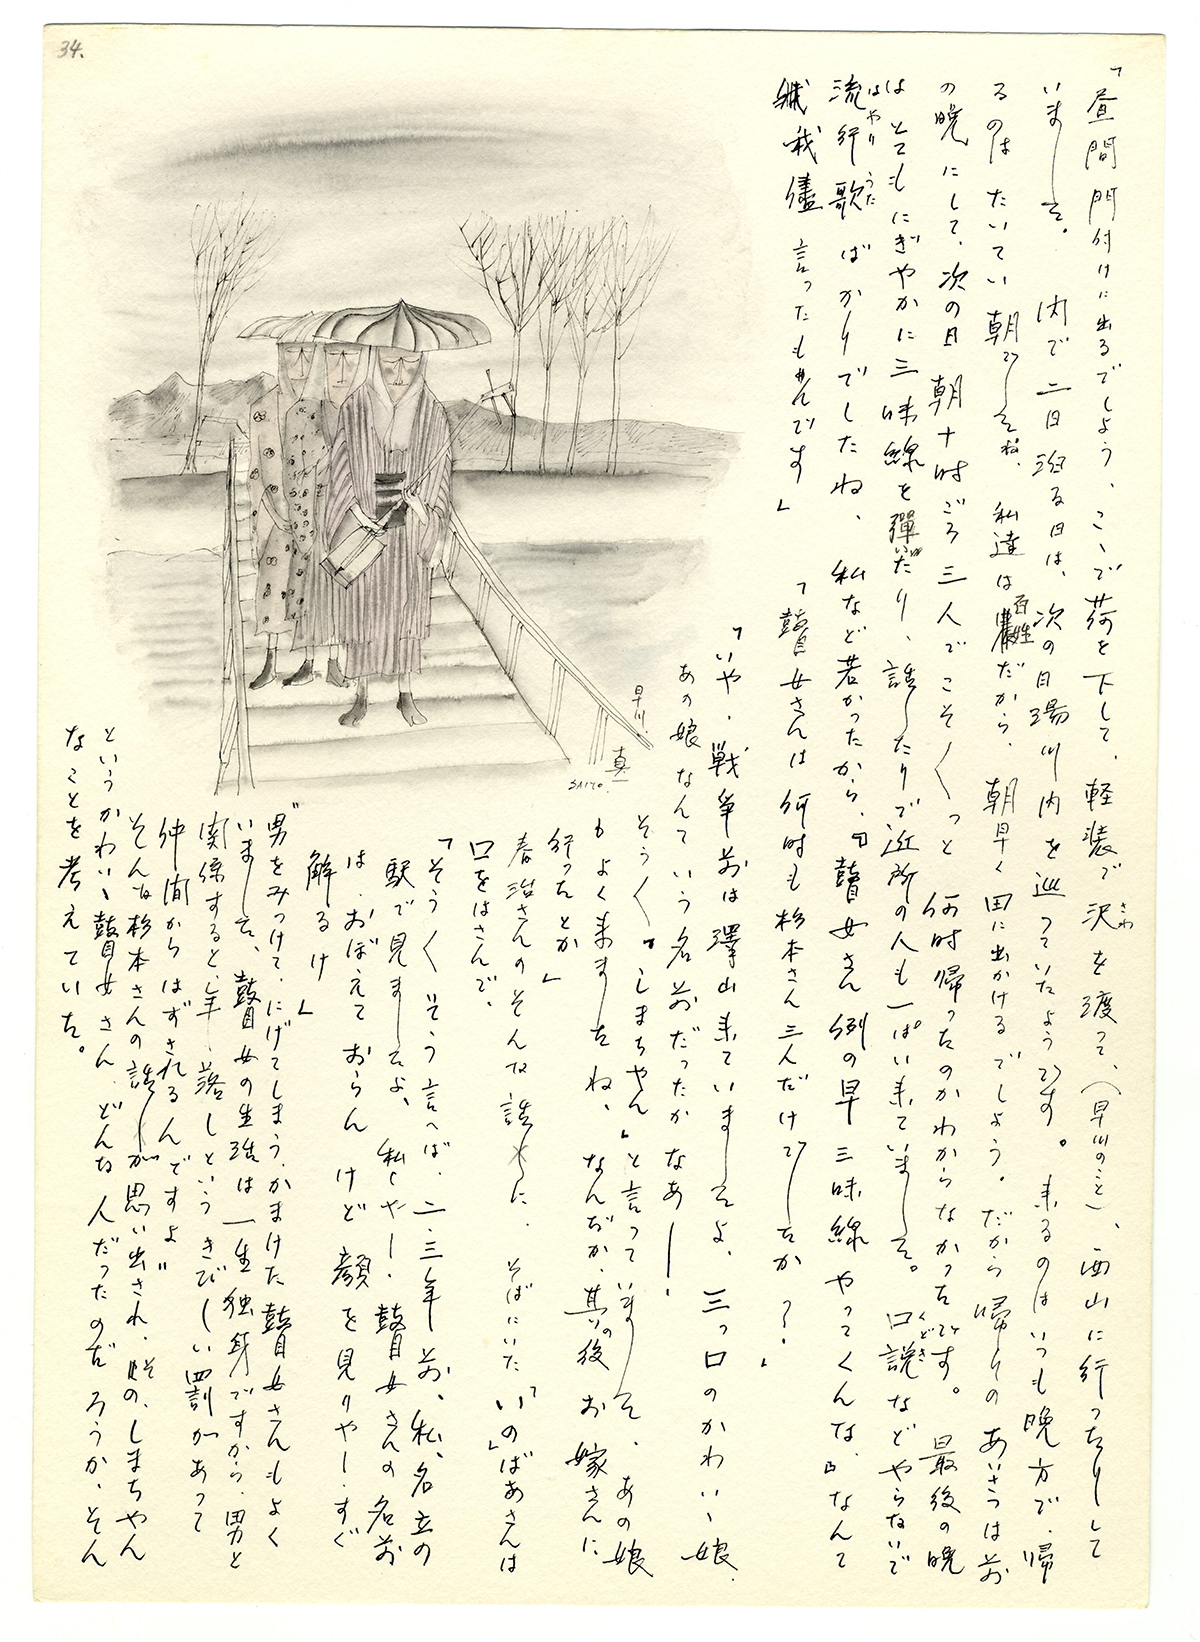 34.
「昼間門付けに出るでしよう、ここで荷を下して、軽装で沢を渡って、（早川のこと）、西山に行ったりして
いました。 内で二日泊る日は、次の日湯川内を巡っていたようです。来るのはいつも晩方で、帰
るのはたいてい朝でしたね、私達は百姓だから、朝早く田に出かけるでしよう。だから帰りのあいさつは前
の晩にして、次の日朝十時ごろ三人でこそ〱っと何時帰ったのかわからなかったです。最後の晩
はとてもにぎやかに三味線を彈いたり、話したりで近所の人も一ぱい来ていました。口説などやらないで
流行歌ばかりでしたね、私など若かったから、『瞽女さん例の早三味線やってくんな』なんて
我儘言ったもんです」
「瞽女さんは何時も杉本さん三人だけでしたか？」
「いや、戦争前は澤山来ていましたよ、三つ口のかわいい娘、
あの娘なんていう名前だったかなあー、
そう〱『しまちやん』と言っていました、あの娘
もよく来ましたね、なんだか、其の後お嫁さんに
行ったとか」
春治さんのそんな話に、そばにいた「いの」ばあさんは
口をはさんで、
「そう〱そう言へば、二、三年前、私、名立の
駅で見ましたよ、私しやー、瞽女さんの名前
は、おぼえておらんけど顔を見りやー、すぐ
解るけ」
〝男をみつけて、にげてしまう、かまけた瞽女さんもよく
いました、瞽女の生活は一生独身ですから、男と
関係すると、年落しというきびしい罰があって
仲間からはずされるんですよ〟
そんな杉本さんの話しが思い出され、その、しまちやん
というかわいい瞽女さん、どんな人だったのだろうか、そん
なことを考えていた。
早川、
真一
SAITO.